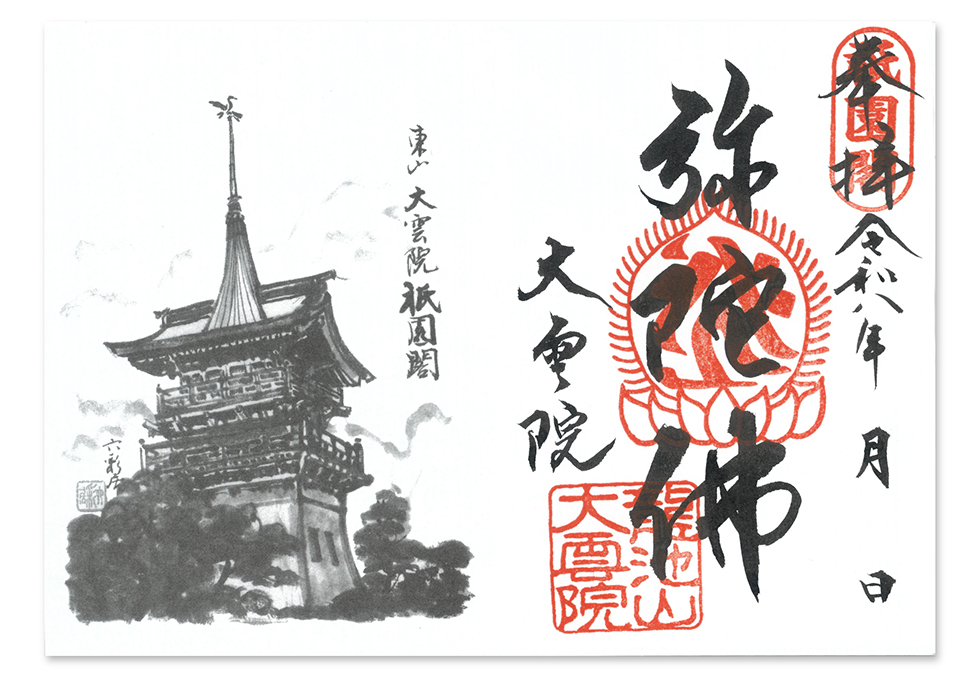 奉拝
令和八年 月 日
祇園閣
弥陀佛
大雲院
龍池山
大雲院
東山 大雲院 祇園閣
六彩舎